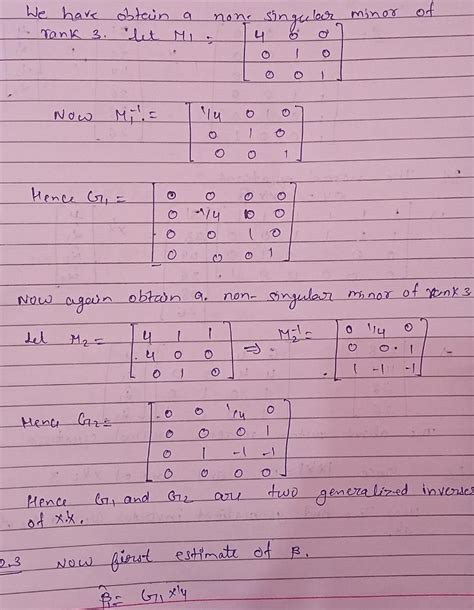 We have obtein a non-singular minor of
rank 3. let M1 = [4 0 0
0 1 0
0 0 1]
Now M1^-1 = [1/4 0 0
0 1 0
0 0 1]
Hence G1 = [0 0 0 0
0 1/4 0 0
0 0 1 0
0 0 0 1]
Now again obtain a non-singular minor of rank 3
Let M2 = [4 1 1
4 0 0
0 1 0] ⇒ M2^-1 = [0 1/4 0
0 0 1
1 -1 -1]
Henc G2 = [0 0 1/4 0
0 0 0 1
0 1 -1 -1
0 0 0 0]
Hence G1 and G2 are two generalized inverses
of x'x.
2.3 Now first estimate of β.
β̂ = G1 x'y